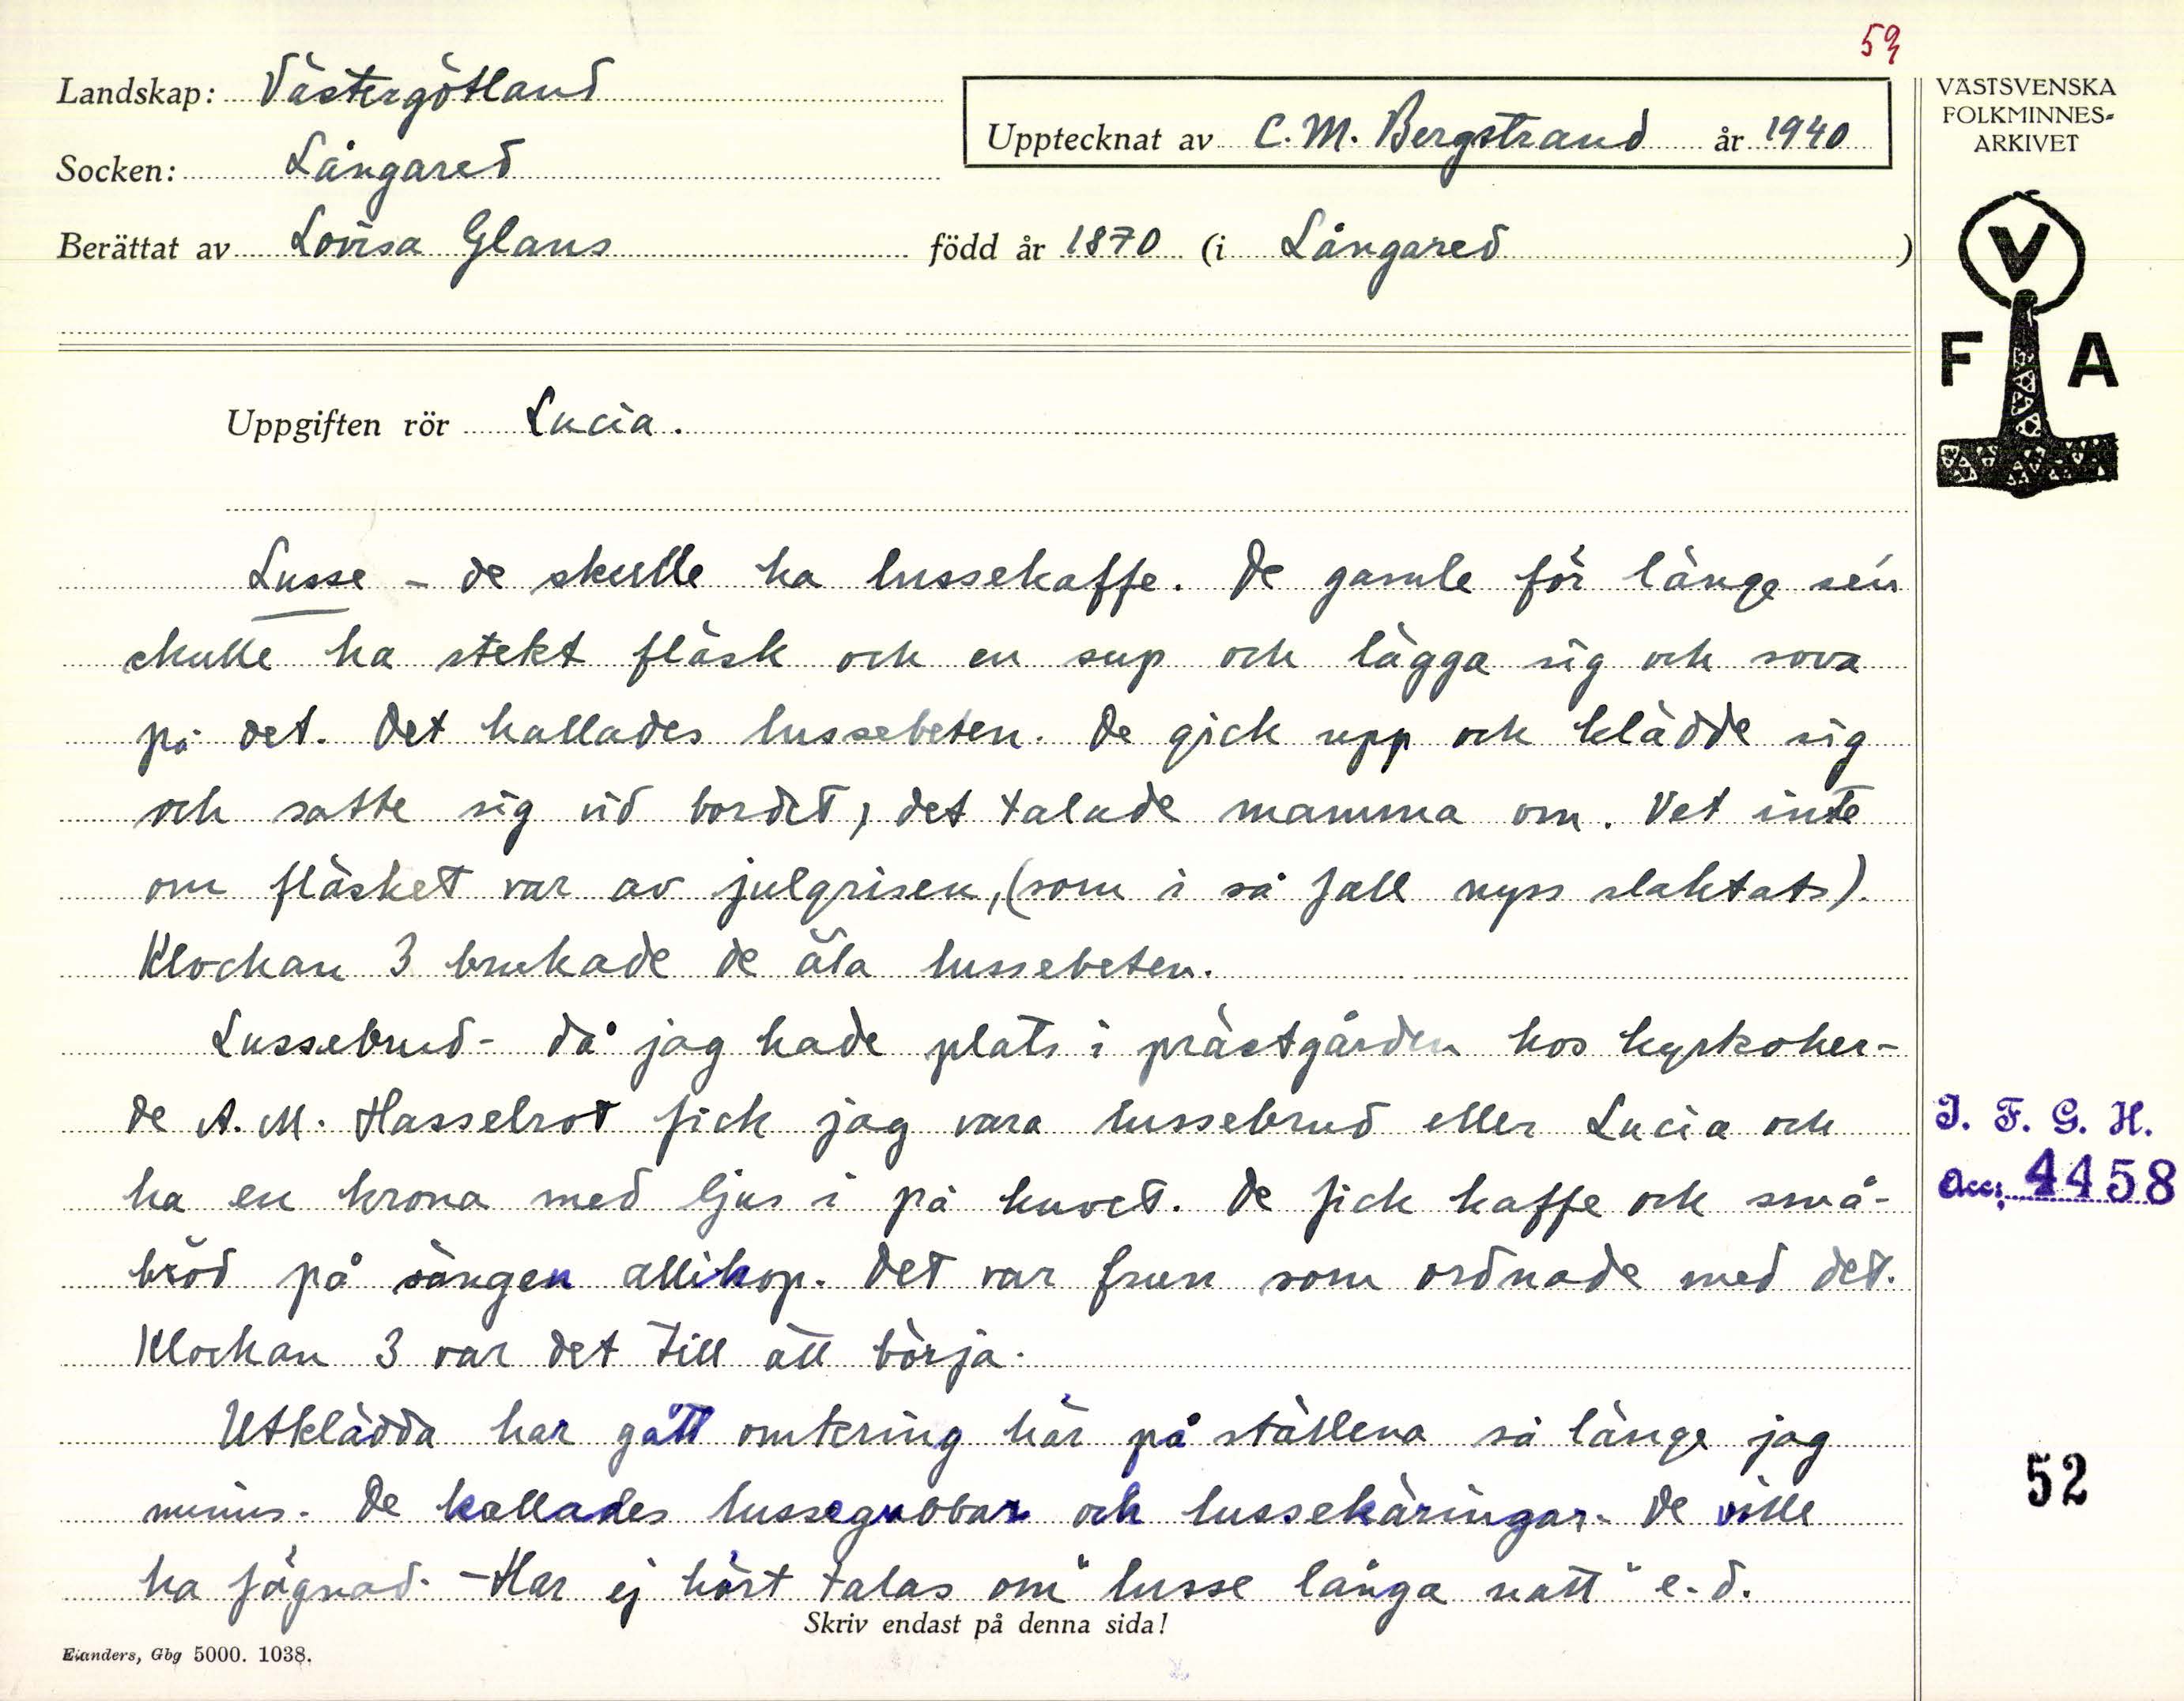 59
Landskap: Västergötland
Upptecknat av C. M. Bergstrand år 1940
Socken: Långared
Berättat av Lovisa Glans född år 1870 (i Långared )
VÄSTSVENSKA
FOLKMINNES-
ARKIVET
V
F A
Uppgiften rör Lucia.
Lusse - de skulle ha lussekaffe. De gamle för länge sen
skulle ha stekt fläsk och en sup och lägga sig och sova
på det. Det kallades lussebeten. De gick upp och klädde sig
och satte sig vid bordet, det talade mamma om. Vet inte
om fläsket var av julgrisen, (som i så fall nyss slaktats).
Klockan 3 brukade de äta lussebeten.
Lussebrud - då jag hade plats i prästgården hos kyrkoher-
de A. M. Hasselrot fick jag vara lussebrud eller Lucia och
ha en krona med ljus i på huvet. De fick kaffe och små-
bröd på sängen allihop. Det var frun som ordnade med det.
Klockan 3 var det till att börja.
Utklädda har gått omkring här på ställena så länge jag
minns. De kallades lussegubbar och lussekäringar. De ville
ha fägnad. - Har ej hört talas om "lusse långa natt" e. d.
J. F. G. H.
Acc. 4458
52
Skriv endast på denna sida!
Elanders, Gbg 5000. 1038.